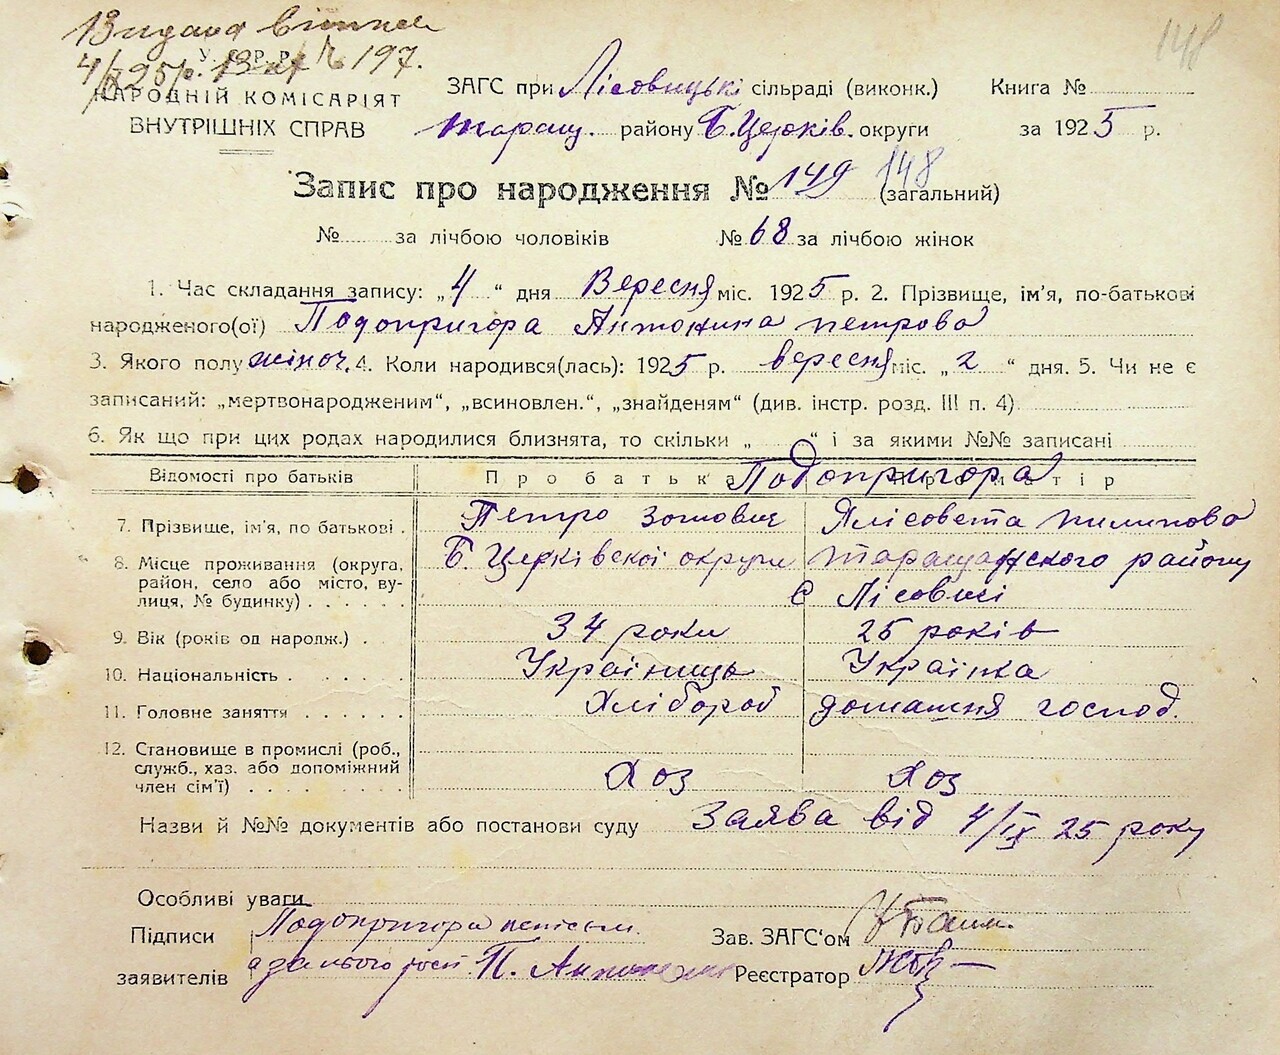 Видана виписка
4/IX 25 р. № 197.
У. С. Р. Р.
НАРОДНІЙ КОМІСАРІЯТ
ВНУТРІШНІХ СПРАВ
148
ЗАГС при Лісовицькі сільраді (виконк.) Книга №
Таращ. району Б. Церків. округи за 1925 р.
Запис про народження № 149 148 (загальний)
№ за лічбою чоловіків № 68 за лічбою жінок
1. Час складання запису: „4“ дня Вересня міс. 1925 р. 2. Прізвище, ім'я, по-батькові
народженого(ої) Подопригора Антонина петрова
3. Якого полу жіноч. 4. Коли народився(лась): 1925 р. вересня міс. „2“ дня. 5. Чи не є
записаний: „мертвонародженим“, „всиновлен.“, „знайденям“ (див. інстр. розд. III п. 4)
6. Як що при цих родах народилися близнята, то скільки „ “ і за якими №№ записані
Відомості про батьків Про батька Про матір
Подопригора
7. Прізвище, ім'я, по батькові. Петро Зотович Ялісовета пилипова
8. Місце проживання (округа, Б. Церківскої округи Таращанского району
район, село або місто, ву-
лиця, № будинку) с Лісовисі
9. Вік (років од народж.) 34 роки 25 років
10. Національність Українищь Українка
11. Головне заняття Хлібороб домашня господ.
12. Становище в промислі (роб.,
служб., хаз. або допоміжний
член сім'ї) Хоз Хоз
Назви й №№ документів або постанови суду Заява від 4/IX 25 року
Особливі уваги
Підписи Подопригора
Зав. ЗАГС'ом
заявителів а за нього П.
Реєстратор